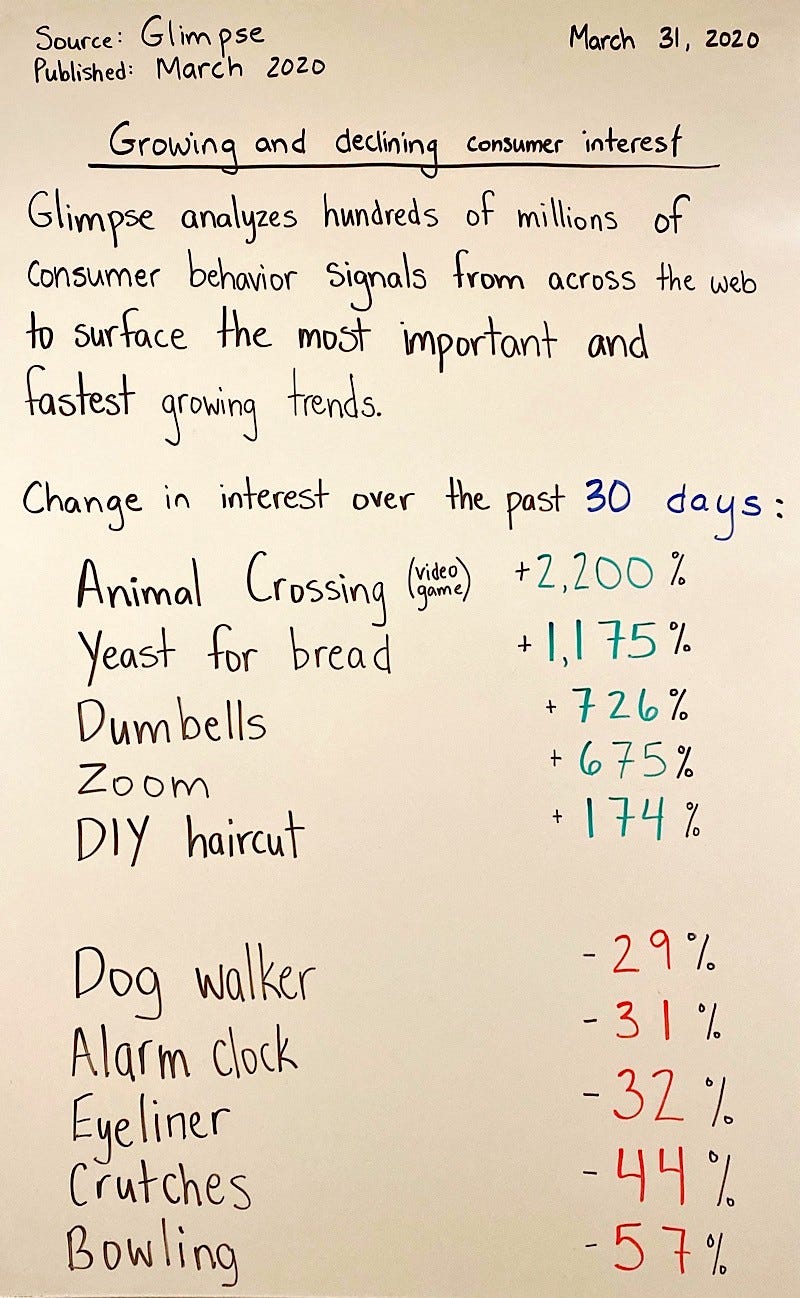 Source: Glimpse
March 31, 2020
Published: March 2020
Growing and declining consumer interest
Glimpse analyzes hundreds of millions of
consumer behavior signals from across the web
to surface the most important and
fastest growing trends.
Change in interest over the past 30 days:
Animal Crossing (video game) +2,200%
Yeast for bread +1,175%
Dumbells +726%
Zoom +675%
DIY haircut +174%
Dog walker -29%
Alarm clock -31%
Eyeliner -32%
Crutches -44%
Bowling -57%